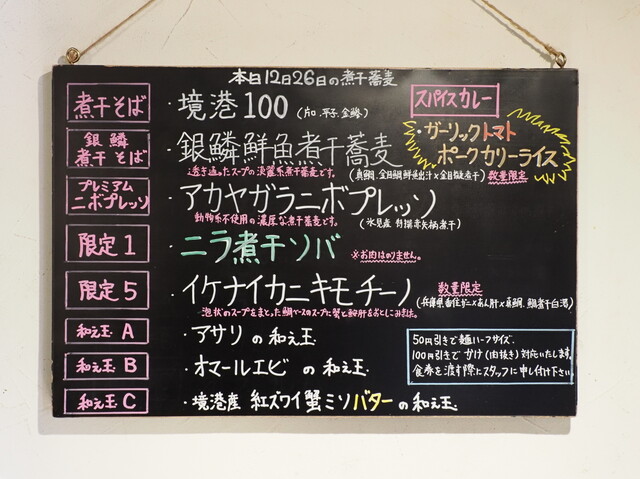 本日12月26日の煮干蕎麦
煮干そば ・境港100 (片口.平子.金鯵)
スパイスカレー
・ガーリックトマト
ポークカリーライス
数量限定
銀鱗
煮干そば ・銀鱗鮮魚煮干蕎麦
透き通ったスープの淡麗系煮干蕎麦です。 (真鯛.金目鯛鮮魚出汁×金目鯛煮干)
プレミアム
ニボプレッソ ・アカヤガラニボプレッソ
動物系不使用の濃厚な煮干蕎麦です。 (氷見産 特選赤矢柄煮干)
限定1 ・ニラ煮干ソバ ※お肉はのりません。
限定5 ・イケナイカニキモチーノ 数量限定
(兵庫県香住ガニ×あん肝×真鯛.鯛煮干白湯)
泡状のスープをまとった鯛ベースのスープに蟹と鮟肝をおとしこみました。
和え玉 A ・アサリの和え玉
和え玉 B ・オマールエビの和え玉
和え玉 C ・境港産 紅ズワイ蟹ミソバターの和え玉
50円引きで麺ハーフサイズ.
100円引きでかけ(肉抜き)対応いたします.
食券を渡す際にスタッフに申し付け下さい.